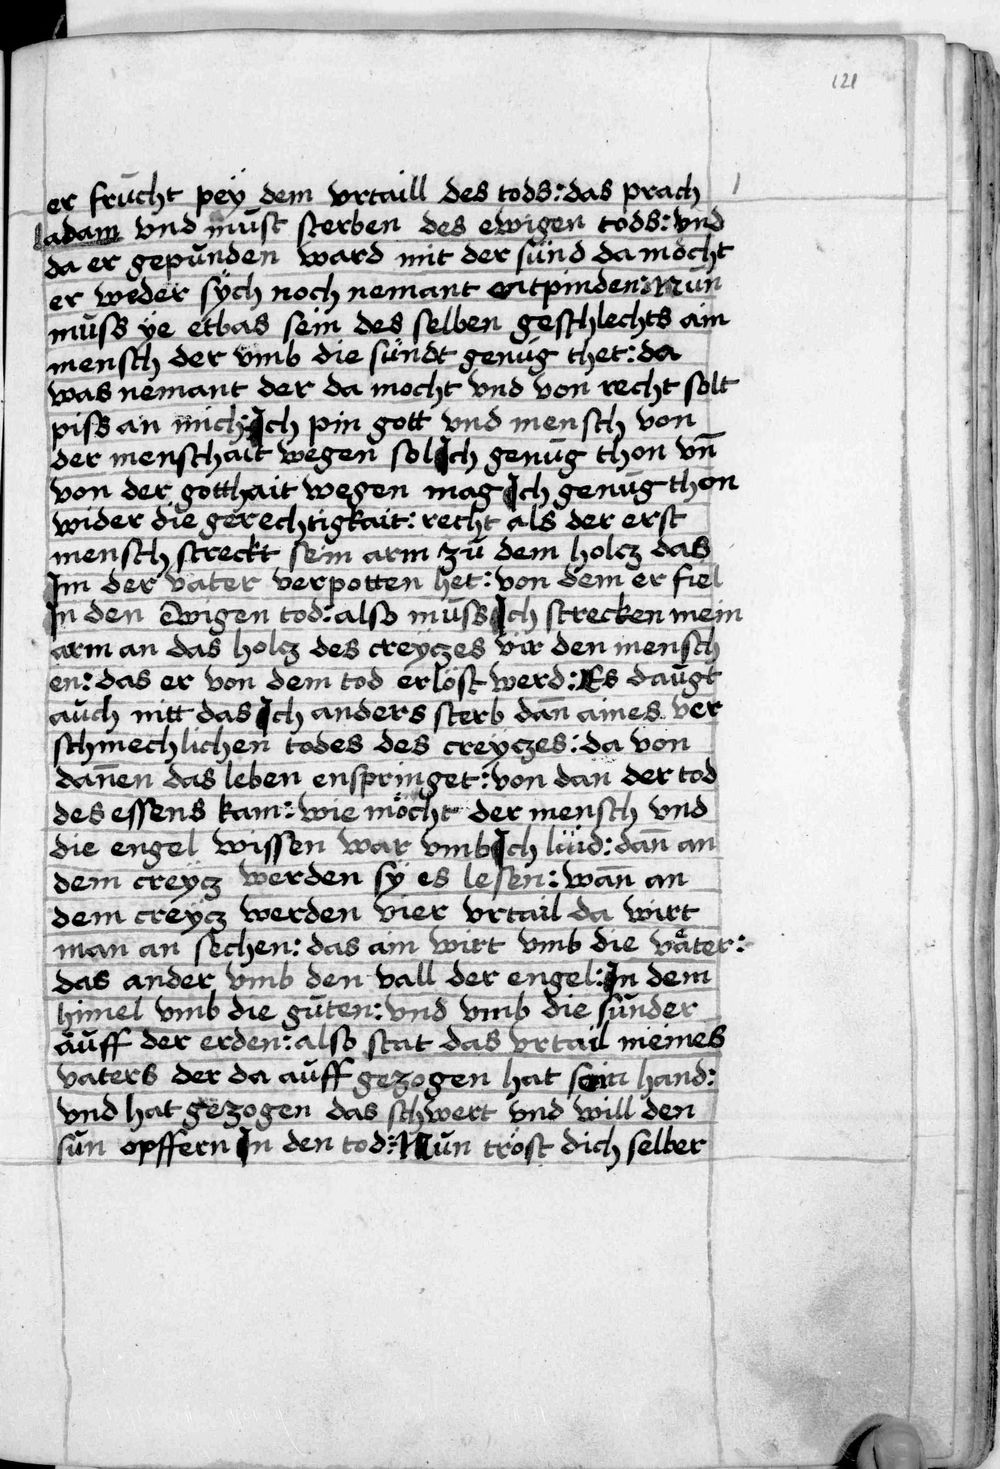 121
er frücht peÿ dem vrtaill des tods: das prach
adam vnd müst sterben des ewigen tods: vnd
da er gepünden ward mit der sünd da mocht
er weder sÿch noch nemant entpinden: Nün
müss ÿe etbas sein des selben geschlechts ain
mensch der vmb die sündt genüg thet: da
was nemant der da mocht vnd von recht solt
piss an mich: Ich pin gott vnd mensch von
der menschait wegen sol Ich genüg thon vn̄
von der gotthait wegen mag Ich genüg thon
wider die gerechtigkait: recht als der erst
mensch streckt sein arm zü dem holcz das
Im der vater verpotten het: von dem er fiel
In den Ewigen tod: also müss Ich strecken mein
arm an das holcz des creÿczes vir den mensch
en: das er von dem tod erlöst werd: Es daügt
aüch nitt das Ich anders sterb dan̄ aines ver
schmechlichen todes des creÿczes: da von
dan̄en das leben enspringet: von dan̄ der tod
des essens kam: wie möcht der mensch vnd
die engel wissen war vmb Ich lüid: dan̄ an
dem creÿcz werden sÿ es lesen: wan̄ an
dem creÿcz werden vier vrtail da wirt
man an sechen: das ain wirt vmb die väter:
das ander vmb den vall der engel: In dem
himel vmb die güten: vnd vmb die sünder
äuff der erden: also stat das vrtail meines
vaters der da aüff gezogen hat sein hand:
vnd hat gezogen das schwert vnd will den
sün opffern In den tod: Nün tröst dich selber